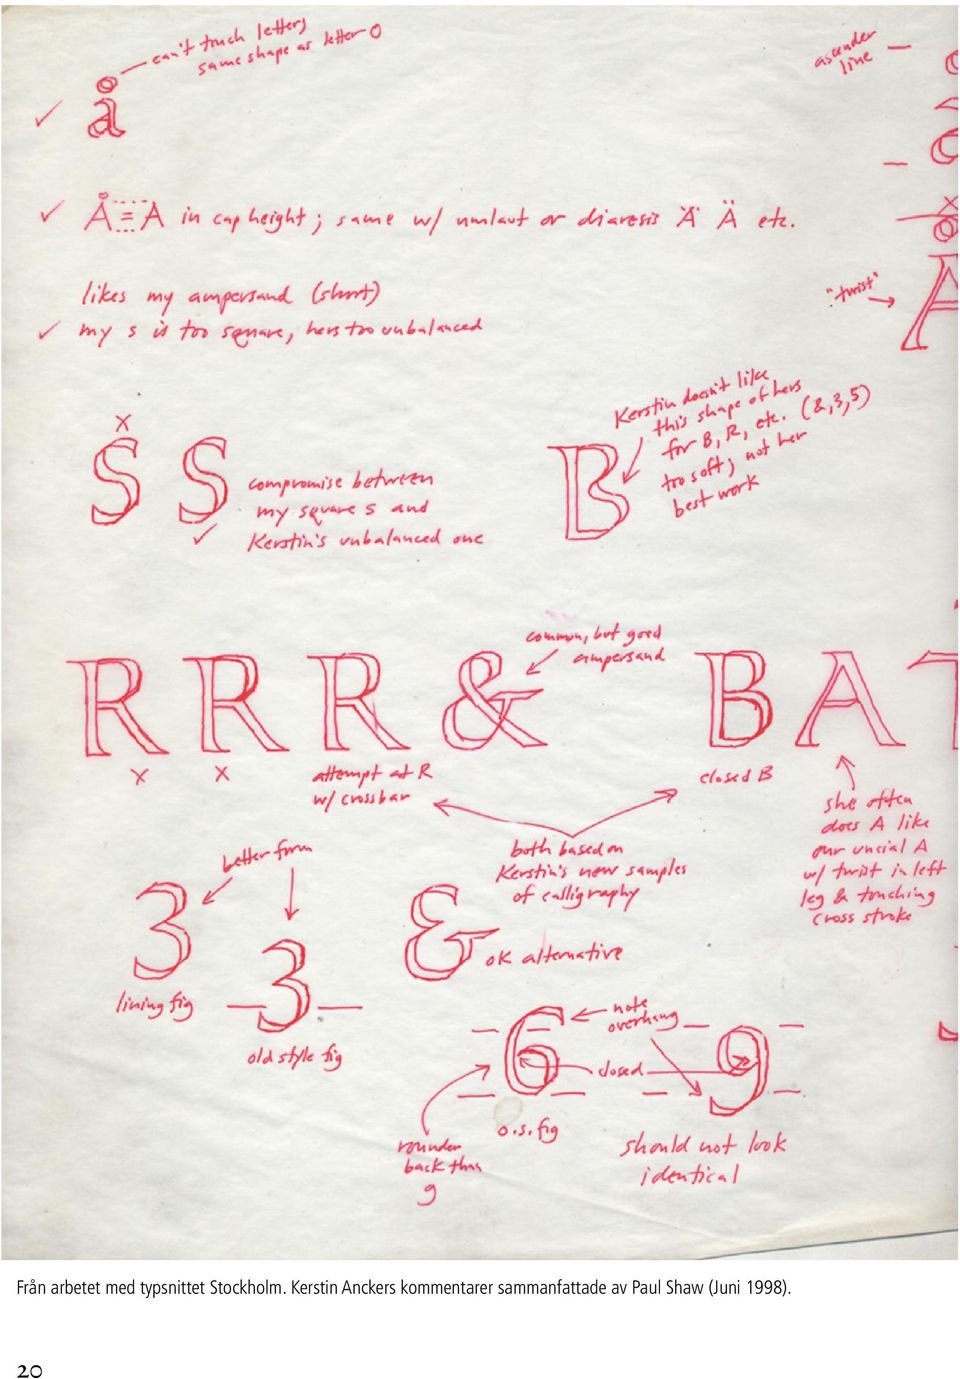 can't touch letters
same shape as letter O
ascender
line
å
✓
✓ Å = A in cap height; same w/ umlaut or diaresis Ä Ä etc.
likes my ampersand (short)
✓ my s is too square, hers too unbalanced
"twist"
A
x
S S
compromise between
my square s and
✓ Kerstin's unbalanced one
B
Kerstin doesn't like
this shape of hers
for B, R, etc. (&,3,5)
too soft; not her
best work
common, but good
ampersand
R R R & B A T
x x
attempt at R
w/ crossbar
closed B
both based on
Kerstin's new samples
of calligraphy
she often
does A like
our uncial A
w/ twist in left
leg & touching
cross stroke
better form
3
lining fig
3
old style fig
&
ok alternative
note
overhang
6 9
closed
o.s. fig
rounder
back than
9
should not look
identical
Från arbetet med typsnittet Stockholm. Kerstin Anckers kommentarer sammanfattade av Paul Shaw (Juni 1998).
20